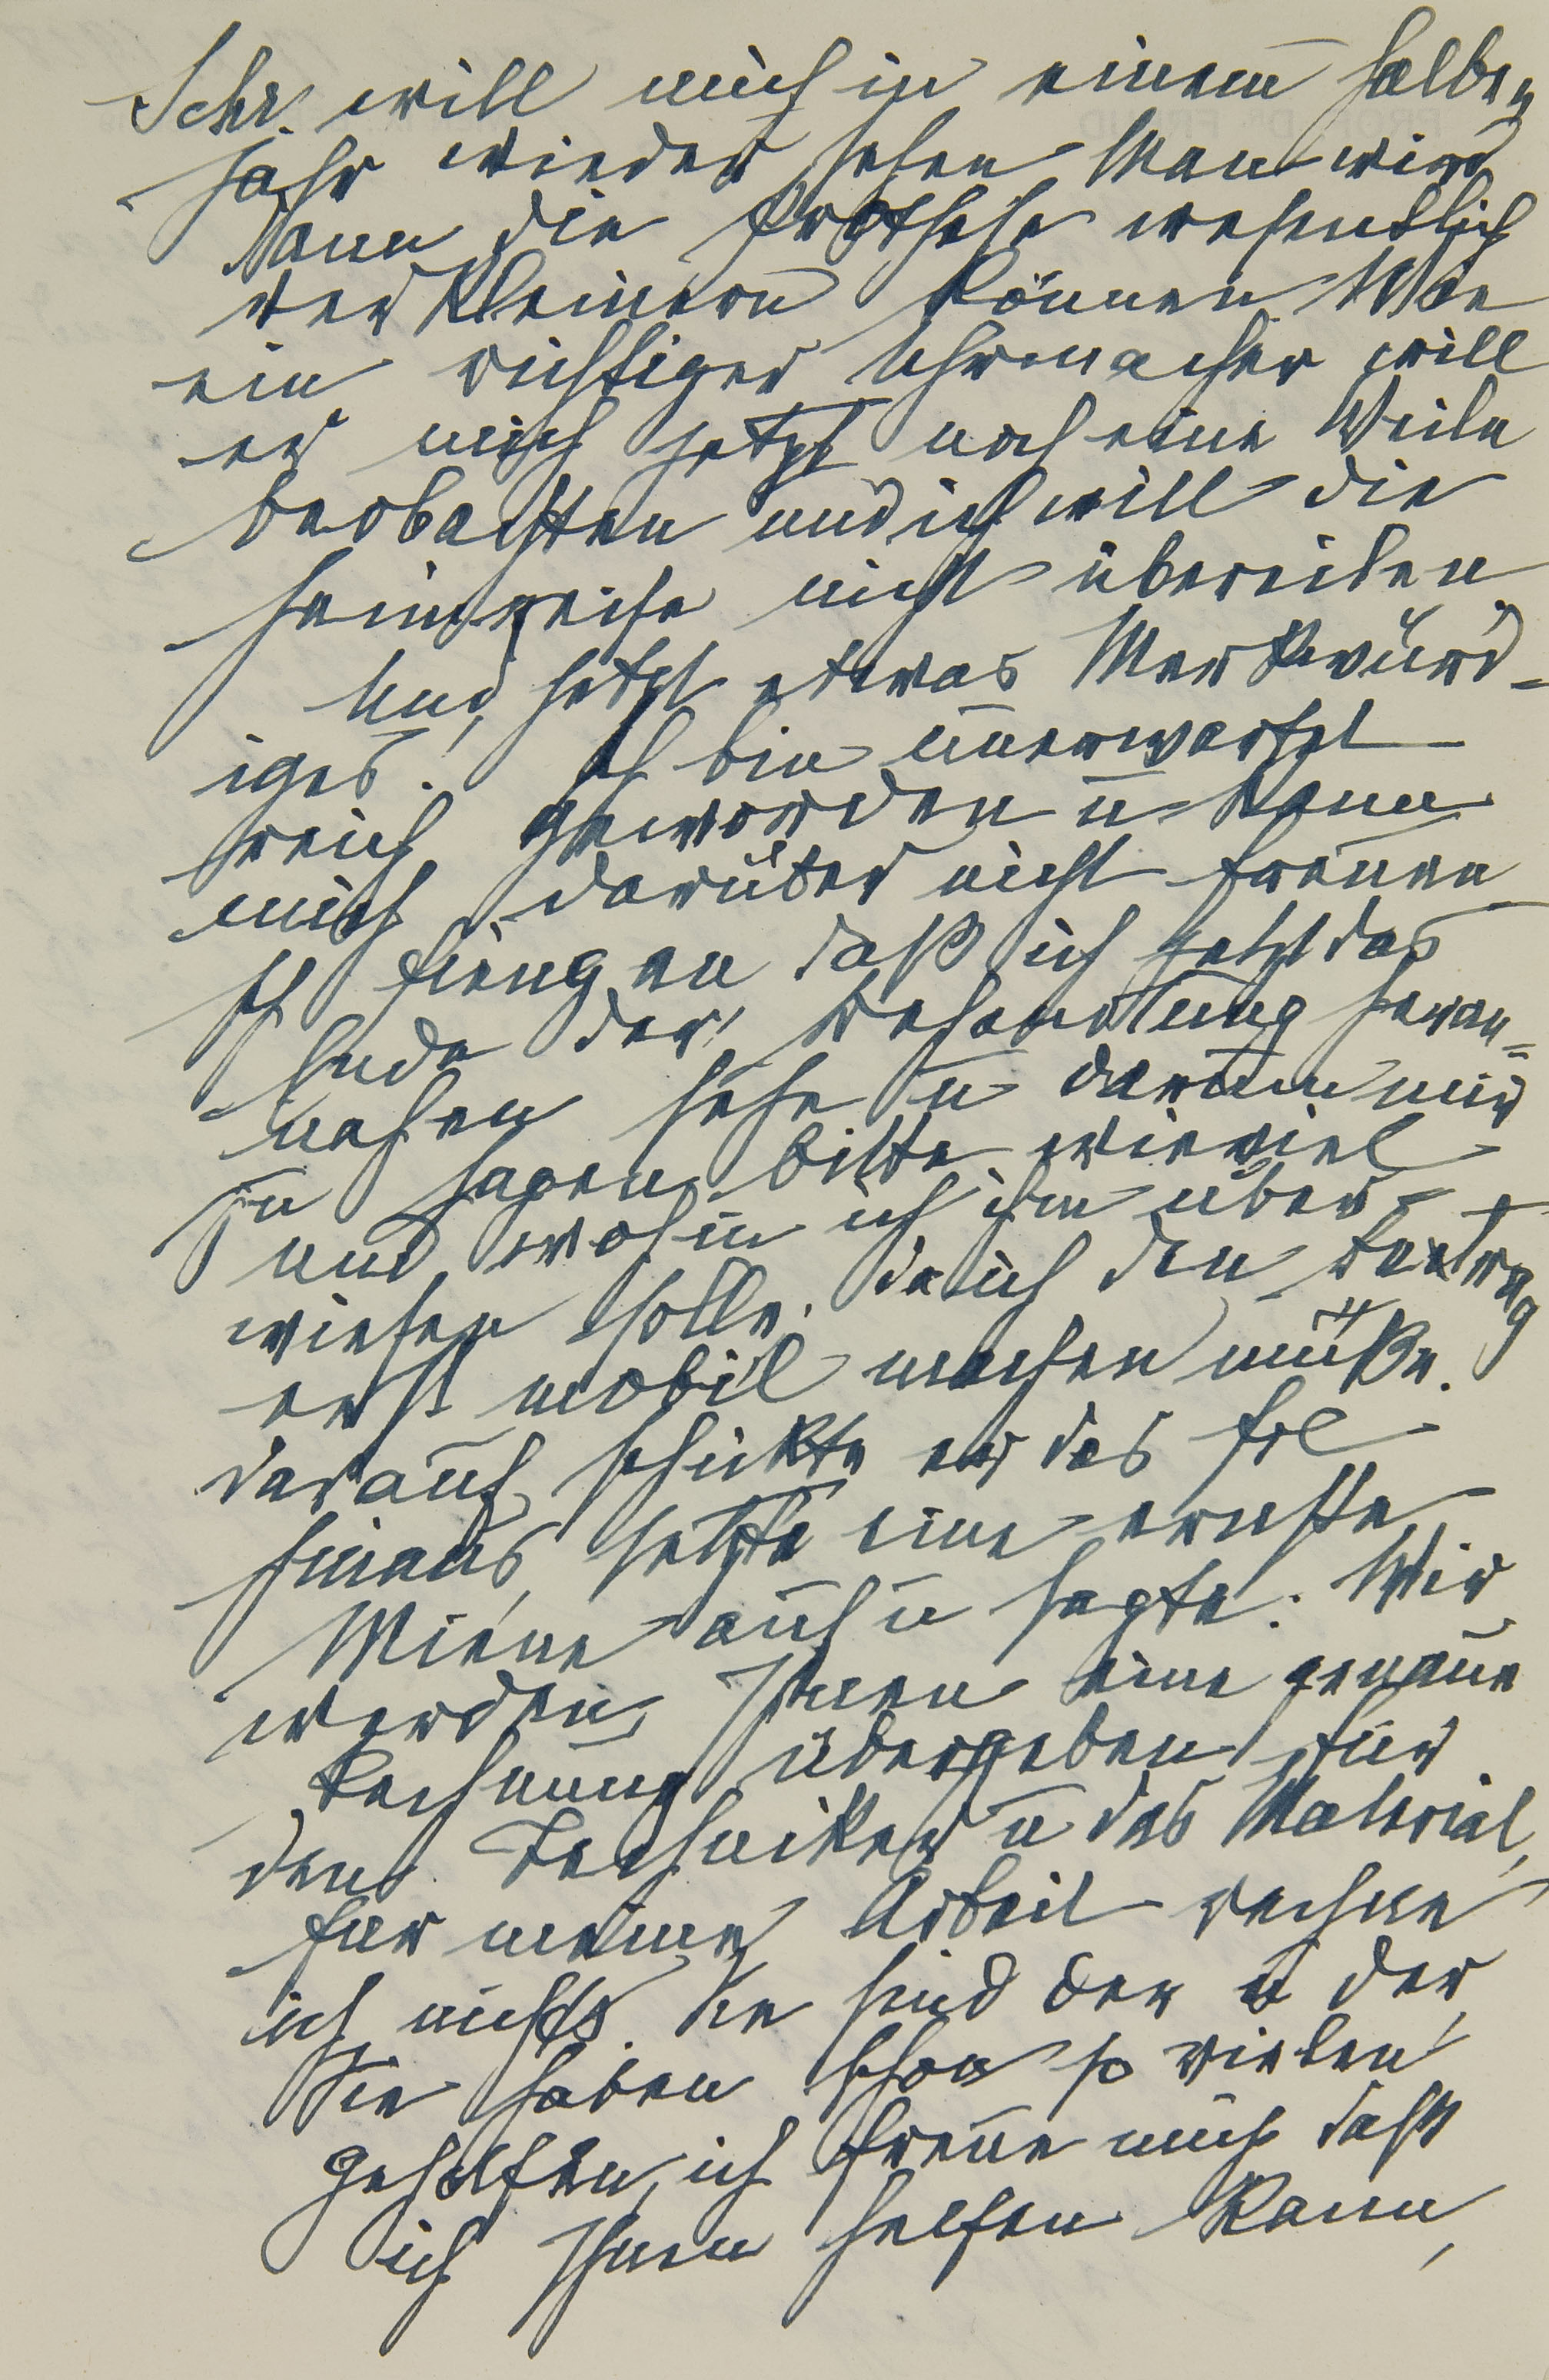 Schr. will mich in einem halben
Jahr wieder sehen Man wird
dann die Prothese wesentlich
verkleinern können Wie
ein richtiger Uhrmacher will
er mich jetzt noch eine Weile
beobachten und ich will die
Heimreise nicht übereilen.
Und jetzt etwas Merkwürd-
iges! Ich bin unerwartet
reich geworden u kann
mich darüber nicht freuen
Ich fieng an daß ich jetzt das
Ende der Behandlung heran-
nahen sehe u darum mir
zu sagen bitte wieviel
und wohin ich ihm über-
weisen solle. da ich den Betrag
erst mobil machen müße.
darauf schickte er das Frl
hinaus, setzte eine ernste
Miene auf u sagte: Wir
werden Ihnen eine genaue
Rechnung übergeben für
den Techniker u das Material,
für meine Arbeit rechne
ich nichts. Sie sind der u der,
Sie haben schon so vielen
geholfen, ich freue mich daß
ich Ihnen helfen kann,